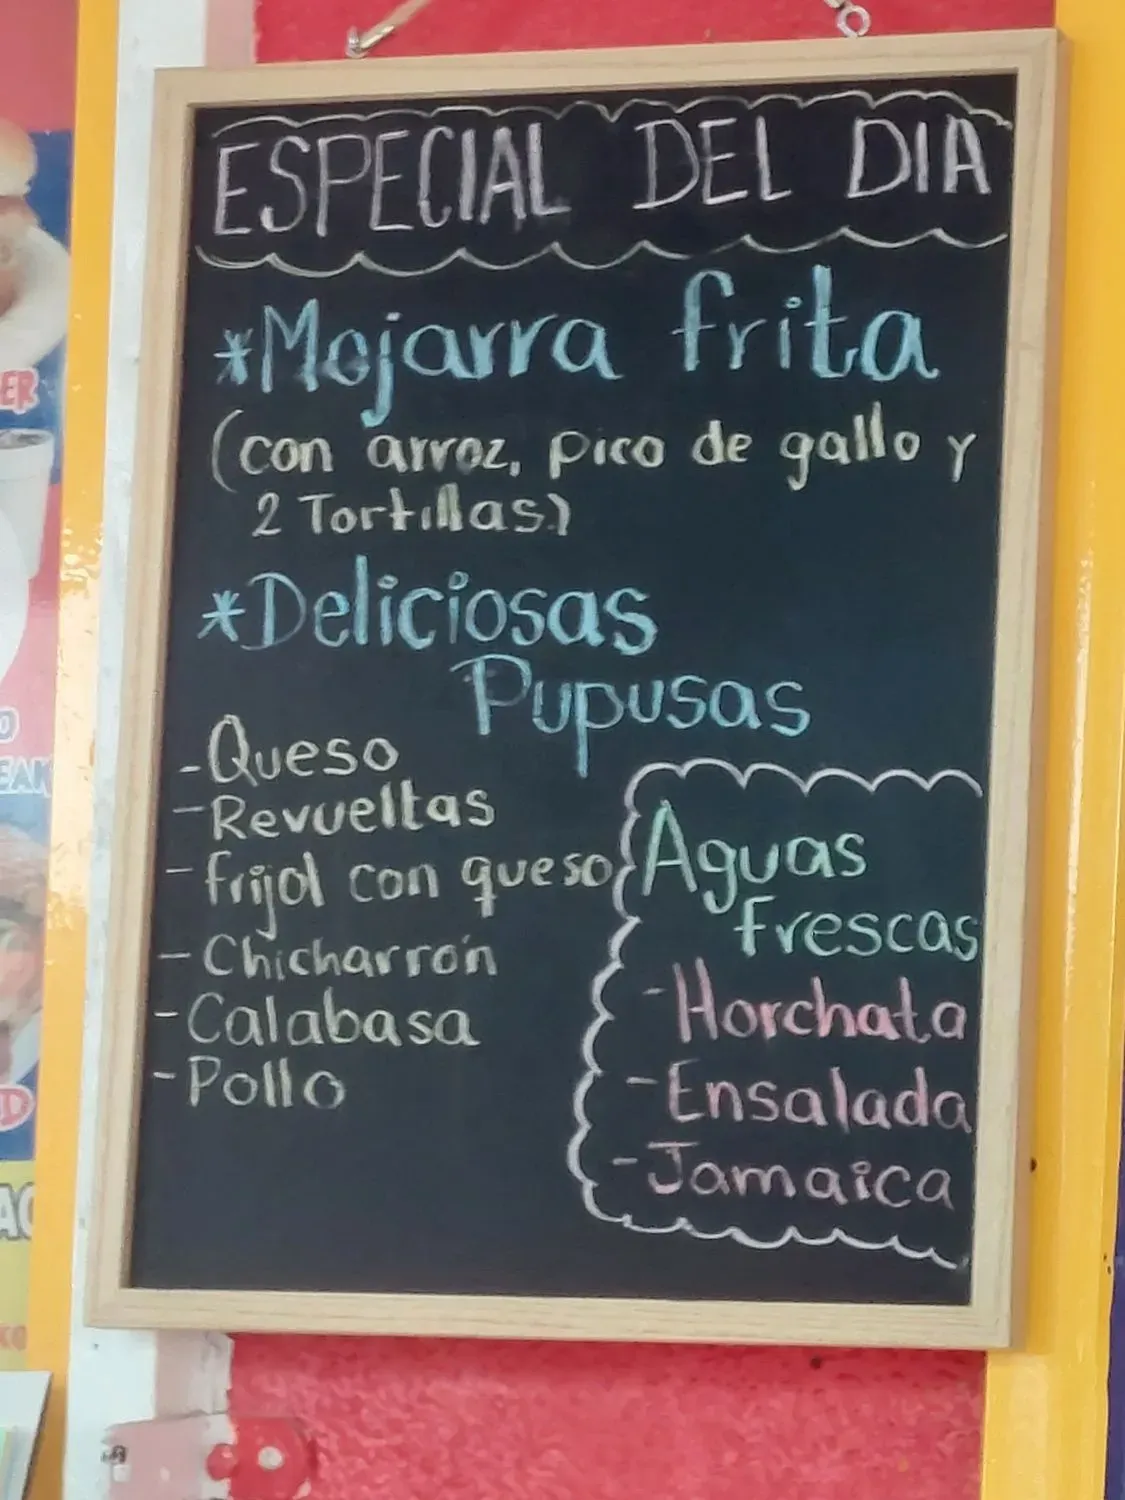 ESPECIAL DEL DIA
*Mojarra frita
(con arroz, pico de gallo y
2 Tortillas.)
*Deliciosas
Pupusas
-Queso
-Revueltas
-frijol con queso
-Chicharrón
-Calabasa
-Pollo
Aguas
frescas
-Horchata
-Ensalada
-Jamaica
ER
EAK